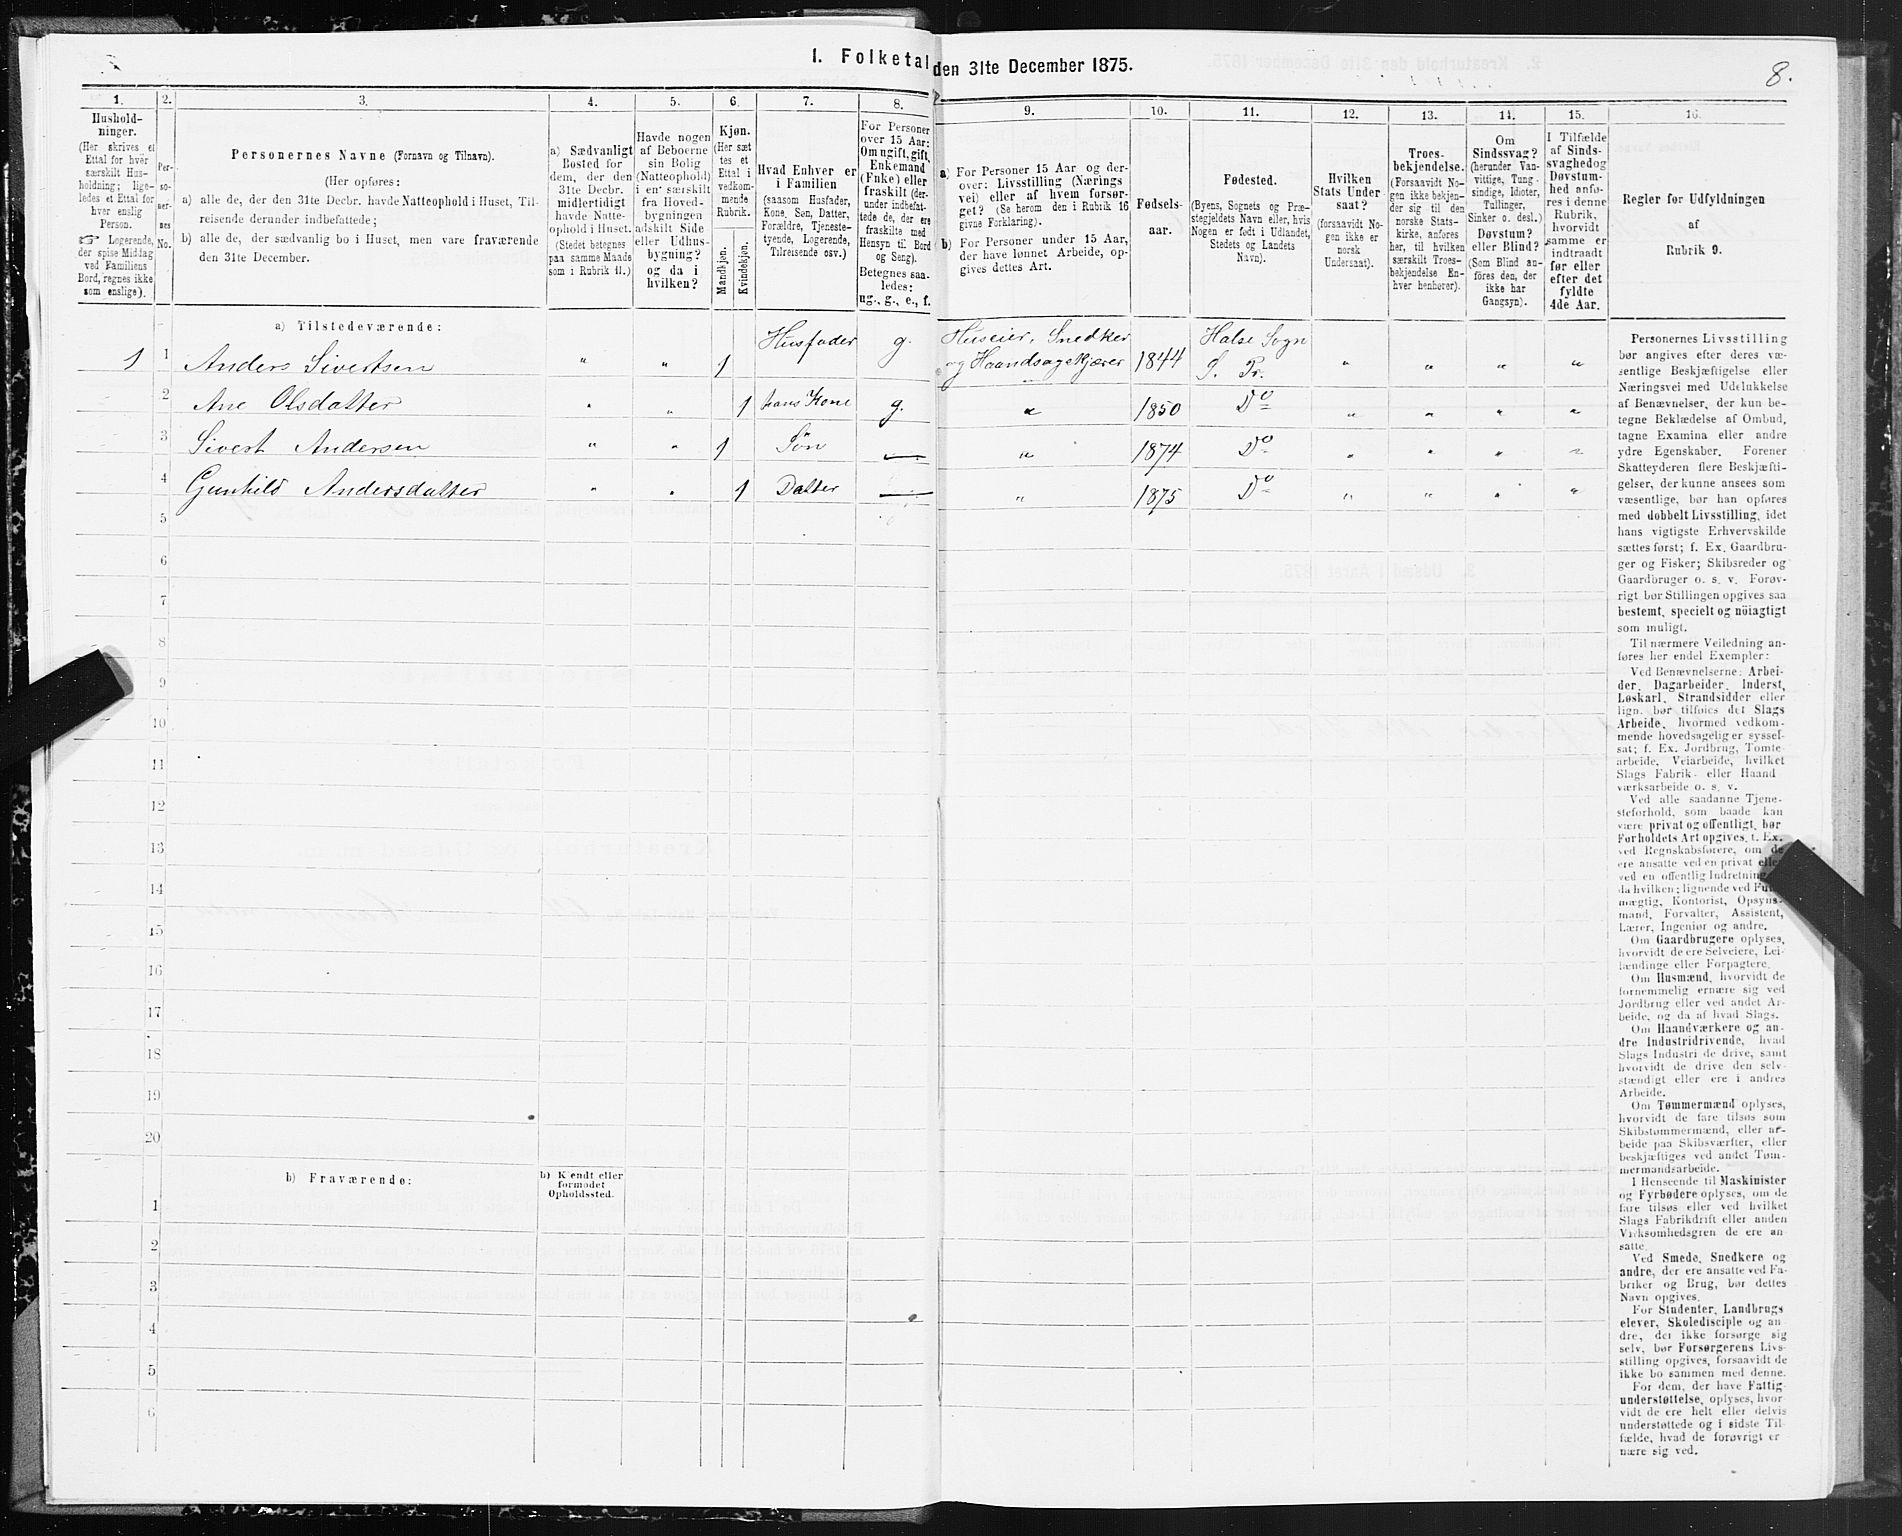 I. Folketal den 31te December 1875.
8.
1.
Hushold-
ninger.
(Her skrives et
Ettal for hver
særskilt Hus-
holdning; lige-
ledes et Ettal for
hver enslig
Person.
☞ Logerende,
der spise Middag
ved Familiens
Bord, regnes ikke
som enslige).
2.
Per-
so-
ner-
nes
No.
3.
Personernes Navne (Fornavn og Tilnavn).
(Her opføres:
a) alle de, der den 31te Decbr. havde Natteophold i Huset, Til-
reisende derunder indbefattede;
b) alle de, der sædvanlig bo i Huset, men vare fraværende
den 31te December.
4.
a) Sædvanligt
Bosted for
dem, der den
31te Decbr.
midlertidigt
havde Natte-
ophold i Huset.
(Stedet betegnes
paa samme Maade
som i Rubrik 11.)
5.
Havde nogen
af Beboerne
sin Bolig
(Natteophold)
i en særskilt
fra Hoved-
bygningen
adskilt Side
eller Udhus-
bygning?
og da i
hvilken?
6.
Kjøn.
(Her sæt
tes et
Ettal i
vedkom-
mende
Rubrik.
Mandkjøn.
Kvindekjøn.
7.
Hvad Enhver er
i Familien
(saasom Husfader,
Kone, Søn, Datter,
Forældre, Tjeneste-
tyende, Logerende,
Tilreisende osv.)
8.
For Personer
over 15 Aar:
Om ugift, gift,
Enkemand
(Enke) eller
fraskilt (der-
under indbefat-
tede de, der ere
fraskilte med
Hensyn til Bord
og Seng).
Betegnes saa-
ledes:
ug., g., e., f.
9.
a) For Personer 15 Aar og der-
over: Livsstilling (Nærings
vei) eller af hvem forsør-
get? (Se herom den i Rubrik 16
givne Forklaring).
b) For Personer under 15 Aar,
der have lønnet Arbeide, op-
gives dettes Art.
10.
Fødsels-
aar.
11.
Fødested.
(Byens, Sognets og Præ-
stegjeldets Navn eller, hvis
Nogen er født i Udlandet,
Stedets og Landets
Navn).
12.
Hvilken
Stats Under-
saat?
(forsaavidt No-
gen ikke er
norsk
Undersaat).
13.
Troes-
bekjendelse.
(Forsaavidt No-
gen ikke bekjen-
der sig til den
norske Stats-
kirke, anføres
her, til hvilken
særskilt Troes-
bekjendelse En-
hver henhører).
14.
Om
Sindssvag?
(herunder Van-
vittige, Tung-
sindige, Idioter,
Tullinger,
Sinker o. desl.)
Døvstum?
eller Blind?
(Som Blind an-
føres den, der
ikke har
Gangsyn).
15.
I Tilfælde
af Sinds-
svaghed og
Døvstum-
hed anfø-
res i denne
Rubrik,
hvorvidt
samme er
indtraadt
før eller
efter det
fyldte
4de Aar.
16.
Regler for Udfyldningen
af
Rubrik 9.
a) Tilstedeværende:
1 1 Anders Sivertsen " " 1 Husfader g. Huseier, Snedker og Haandsagskjærer 1844 Halse Sogn S. Pr. " " " "
2 Ane Olsdatter " " 1 hans Kone g. " 1850 Do " " " "
3 Sivert Andersen " " 1 Søn — " 1874 Do " " " "
4 Gunhild Andersdatter " " 1 Datter — " 1875 Do " " " "
5
6
7
8
9
10
11
12
13
14
15
16
17
18
19
20
b) Fraværende:
b) Kjendt eller
formodet
Opholdssted.
1
2
3
4
5
6
Personernes Livsstilling
bør angives efter deres væ-
sentlige Beskjæftigelse eller
Næringsvei med Udelukkelse
af Benævnelser, der kun be-
tegne Beklædelse af Ombud,
tagne Examina eller andre
ydre Egenskaber. Forener
Skatteyderen flere Beskjæfti-
gelser, der kunne ansees som
væsentlige, bør han opføres
med dobbelt Livsstilling, idet
hans vigtigste Erhvervskilde
sættes først; f. Ex. Gaardbru-
ger og Fisker; Skibsreder og
Gaardbruger o. s. v. Forøv-
rigt bør Stillingen opgives saa
bestemt, specielt og nöiagtigt
som muligt.
Til nærmere Veiledning an-
føres her endel Exempler:
Ved Benævnelserne: Arbei-
der, Dagarbeider, Inderst,
Løskarl, Strandsidder eller
lign. bør tilføies det Slags
Arbeide, hvormed vedkom-
mende hovedsagelig er syssel-
sat; f. Ex. Jordbrug, Tomte-
arbeide, Veiarbeide, hvilket
Slags Fabrik- eller Haand
værksarbeide o. s. v.
Ved alle saadanne Tjene-
steforhold, som baade kan
være privat og offentligt, bør
Forholdets Art opgives, t. Ex.
ved Regnskabsførere, om de
ere ansatte ved en privat eller
ved en offentlig Indretning
da hvilken; lignende ved Fuld-
mægtig, Kontorist, Opsyns-
mand, Forvalter, Assistent,
Lærer, Ingeniør og andre.
Om Gaardbrugere oplyses,
hvorvidt de ere Selveiere, Lei-
lændinge eller Forpagtere.
Om Husmænd, hvorvidt de
fornemmelig ernære sig ved
Jordbrug eller ved andet Ar-
beide, og da af hvad Slags.
Om Haandværkere og an-
dre Industridrivende, hvad
Slags Industri de drive, samt
hvorvidt de drive den selv-
stændigt eller ere i andres
Arbeide.
Om Tømmermænd oplyses,
hvorvidt de fare tilsøs som
Skibstømmermænd, eller ar-
beide paa Skibsværfter, eller
beskjæftiges ved andet Tøm-
mermandsarbeide.
I Henseende til Maskinister
og Fyrbødere oplyses, om de
fare tilsøs eller ved hvilket
Slags Fabrikdrift eller anden
Virksomhedsgren de ere an-
satte.
Ved Smede, Snedkere og
andre, der ere ansatte ved Fa-
briker og Brug, bør dettes
Navn opgives.
For Studenter, Landbrugs
elever, Skoledisciple og an
dre, der ikke forsørge sig
selv, bør Forsørgerens Livs-
stilling opgives, forsaavidt de
ikke bo sammen med denne.
For dem, der have Fattig-
understøttelse, oplyses, hvor-
vidt de ere helt eller delvis
understøttede og i sidste Til-
fælde, hvad de forøvrigt er
nære sig ved.